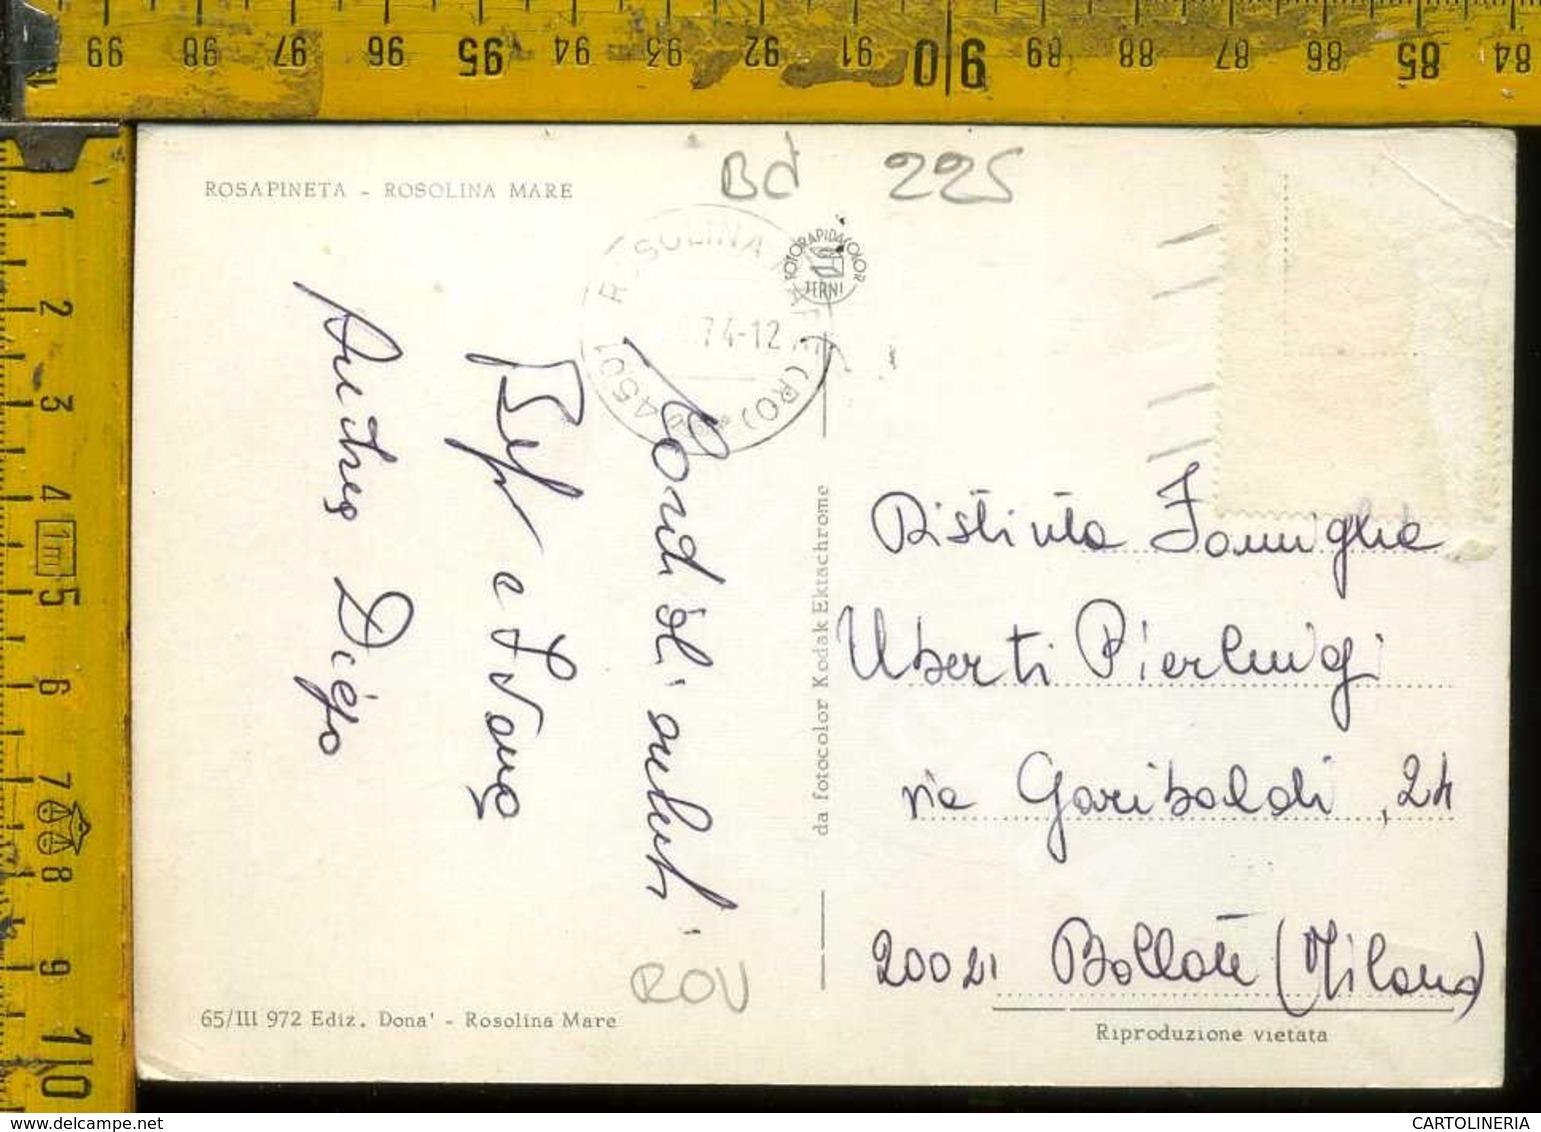 99 98 97 96 95 94 93 92 91 90 89 88 87 86 85 84
1
2
3
4
1m
5
6
7
8
9
10
Bd 225
ROSAPINETA - ROSOLINA MARE
ROSOLINA MARE (RO)
4501
74-12
FOTORAPIDACOLOR
TERNI
Cordiali saluti
e Ivana
Diego
da fotocolor Kodak Ektachrome
Distinta Famiglia
Uberti Pierluigi
via Garibaldi, 24
20021 Bollate (Milano)
ROV
65/III 972 Ediz. Dona' - Rosolina Mare
Riproduzione vietata
CARTOLINERIA